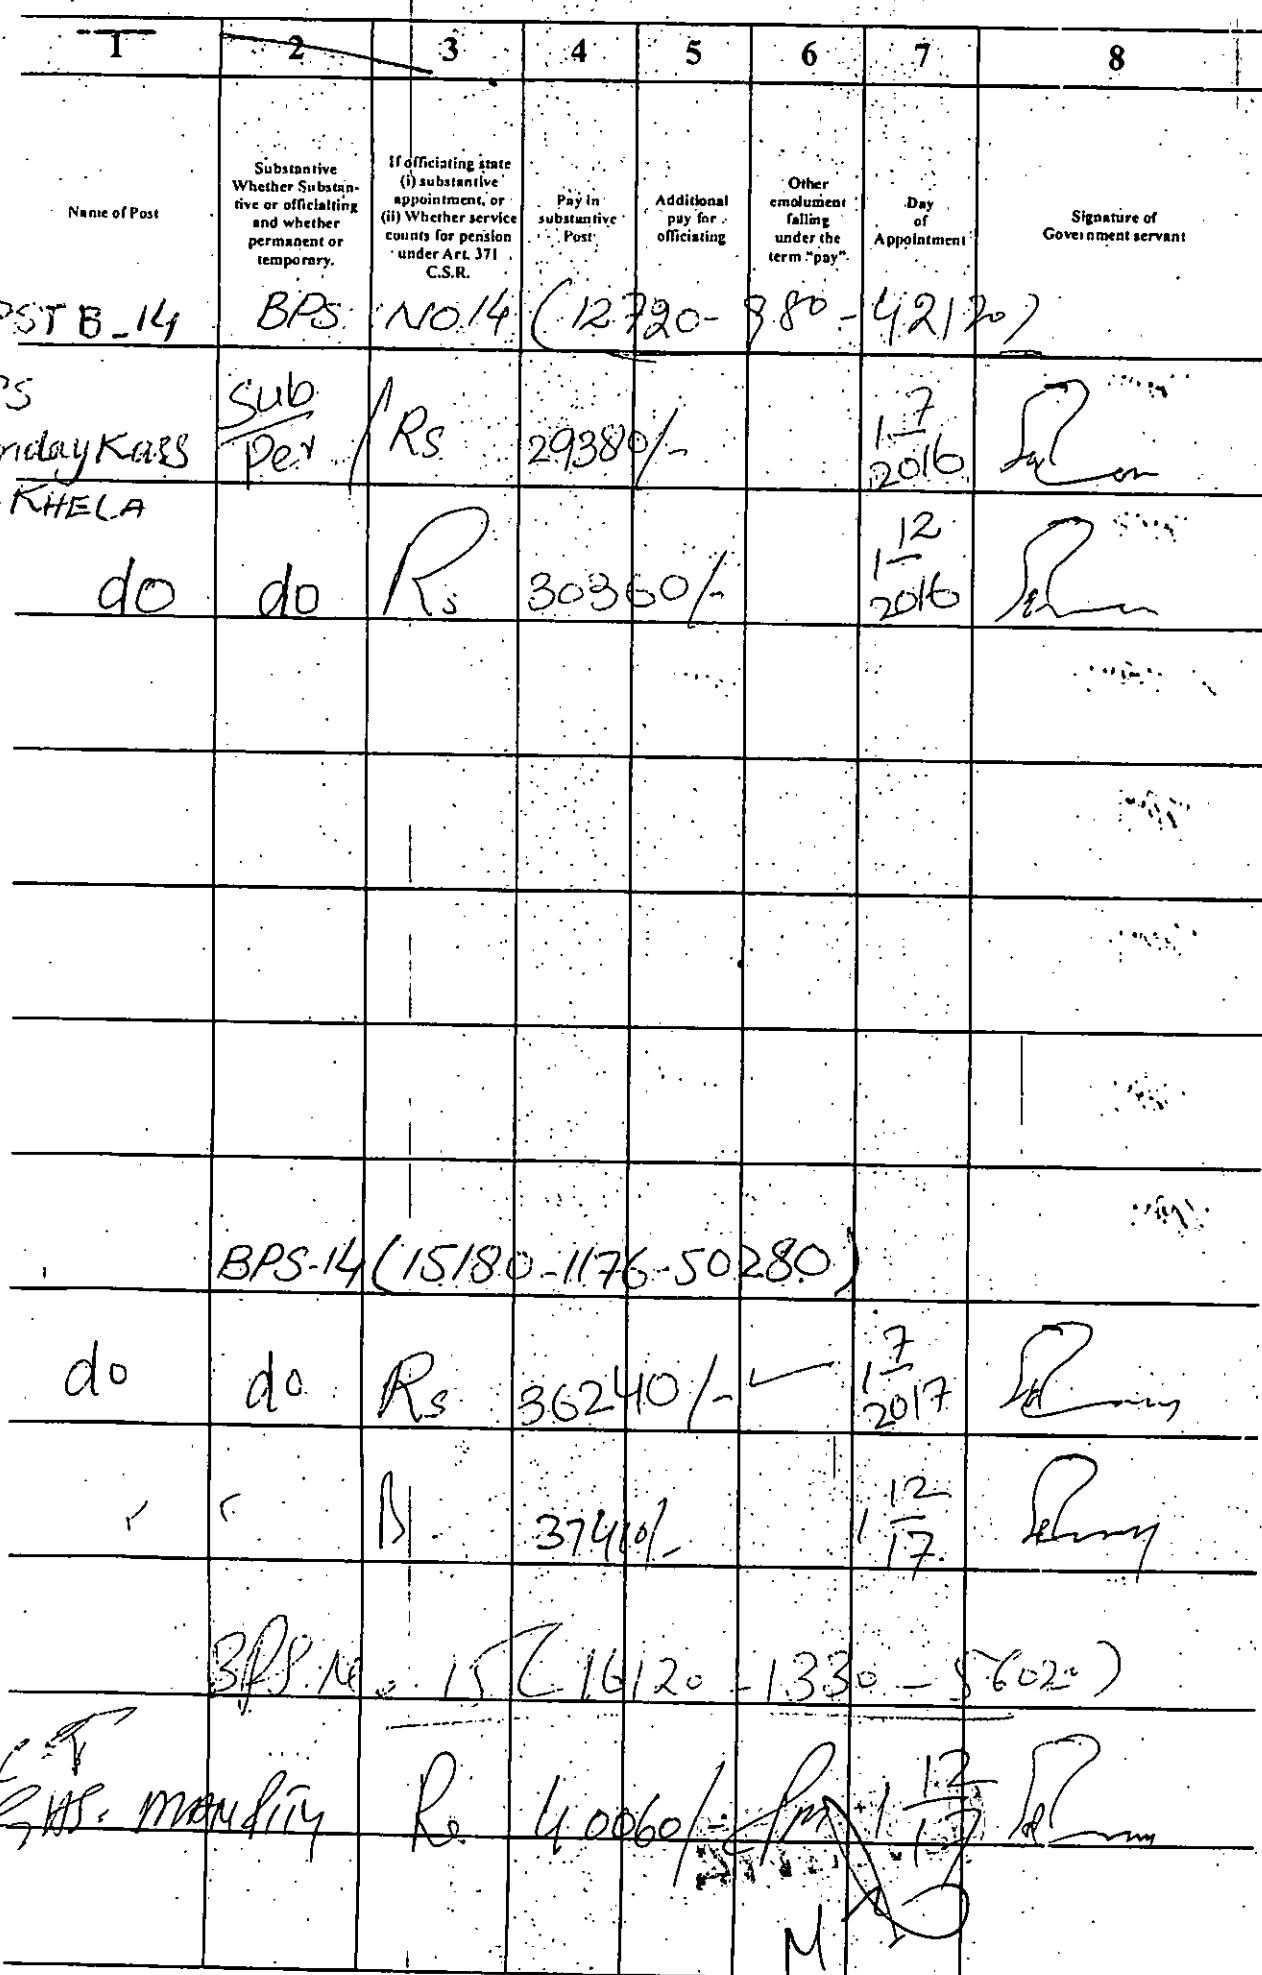 1 2 3 4 5 6 7 8
Name of Post
Substantive
Whether Substan-
tive or officialting
and whether
permanent or
temporary.
If officiating state
(i) substantive
appointment, or
(ii) Whether service
counts for pension
under Art. 371
C.S.R.
Pay in
substantive
Post
Additional
pay for
officiating
Other
emolument
falling
under the
term "pay"
Day
of
Appointment
Signature of
Government servant
PST B-14 BPS NO.14 (12720-980-42120)
Sub
Per Rs 29380/- 1-7
2016
KHELA
do do Rs 30360/- 1-12
2016
BPS-14 (15180-1176-50280)
do do Rs 36240/- 1-7
2017
37410/- 1-12
17
BPS No. 15 (16120-1330-56020)
CT
GHS. Rs 40060/- 1-12
17